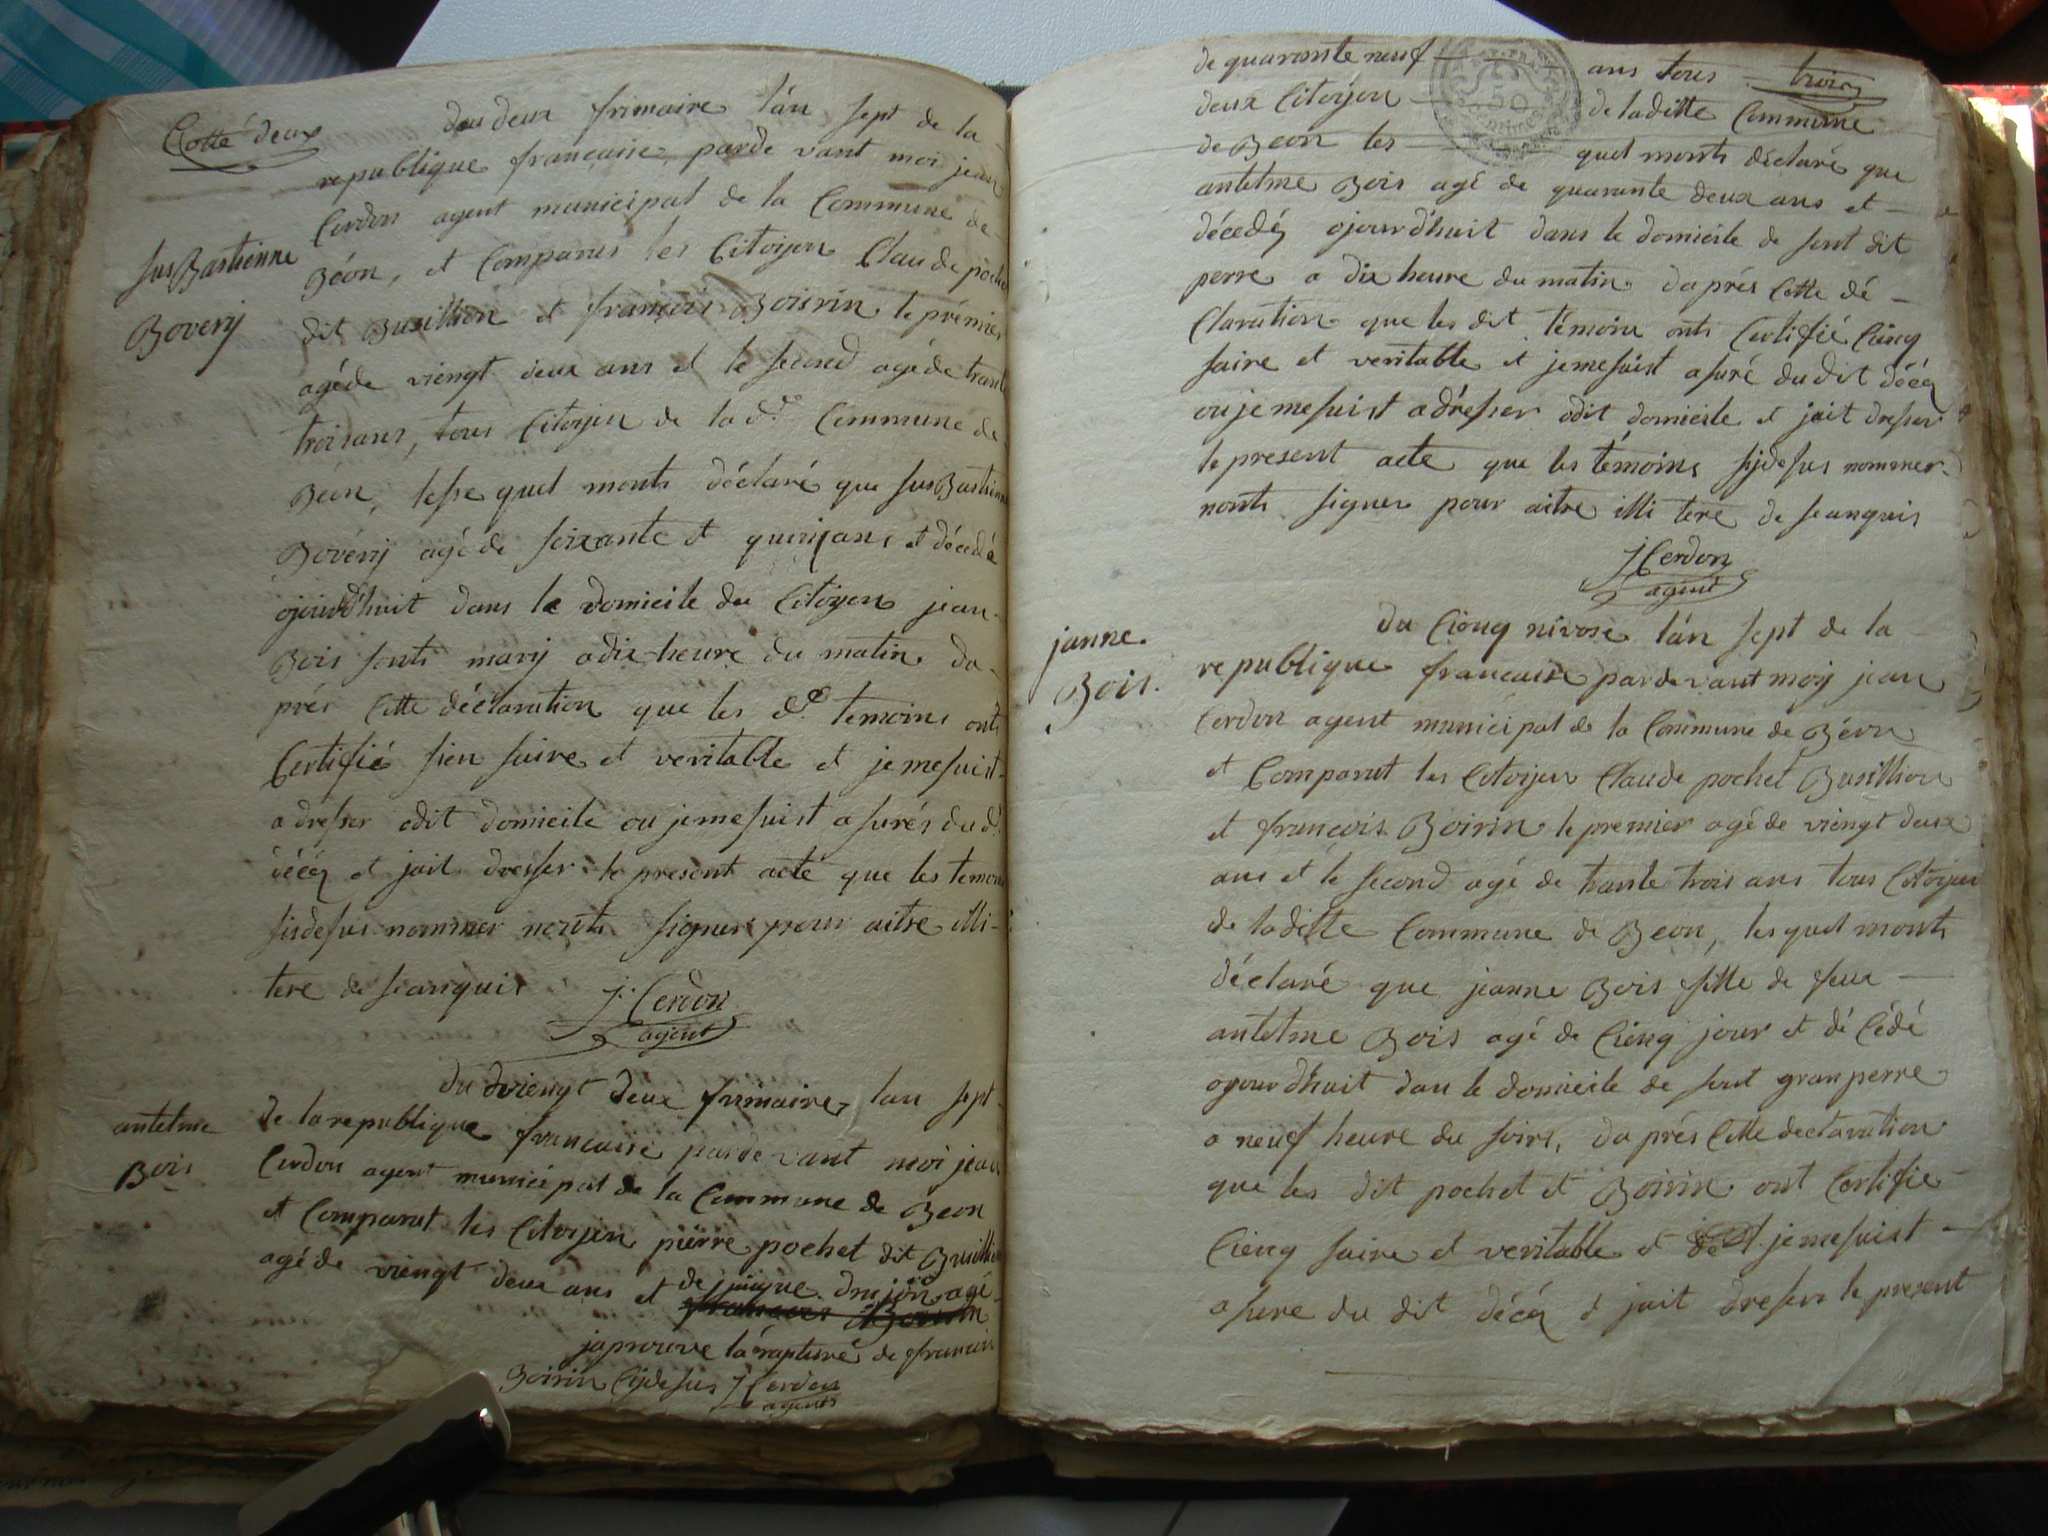 Cotté deux
du deux frimaire l'an sept de la
republique francaise, parde vant moi jean
Cerdon agent municipal de la Commune de
susBastienne
Bovery
Béon, et Comparus les Citoijen Claude poche
dit Busillion et francois Boisrin le prémier
agéde viengt deux ans et le second agéde trante
troisans, tous Citoijen de la de. Commune de
Béon, lesse quel monts déclaré que susBastienne
Bovérij agé de soixante et quinzans et décedé
ojourd'huit dans le domicile du Citoyen jean
Bois sonts marij a dix heure du matin da
prés Cette déclaration que les dt. temoins onts
Certifié sien saire et veritable et jemesuist
adresser odit domicile ou jemesuist asurés du dt.
décéz et jait dresser le present acte que les temoins
sisdesus nommer nonts signer pour aitre illi-
tere de seanquis
j. Cerdon
agent
antelme
Bois
du viengt deux frimaire lan sept
de la republique francaise parde vant moi jean
Cerdon agent municipal de la Commune de Beon
et Comparut les Citoijen pierre pochet dit Busillion
agé de viengt deux ans et de juigue drujon agé
francois Boirin
japrouve la rapture de francois
Boirin Cijdesus j Cerdon
agents
de quarante neuf ans tous trois
deux Citoijen de laditte Commune
de Beon les quel monts déclaré que
antelme Bois agé de quarante deux ans et
décedéz ojourd'huit dans le domicile de sont dit
perre a dix heure du matin daprés Cette dé
Claration que les dit témoins onts Certifié Cienq
saire et veritable et jemesuist asuré dudit décéz
ou je me suist adresser odit domicile et jait dresser
le present acte que les témoins sijdesus nommer
nonts signer pour aitre illi tere de seanquis
j Cerdon
agent
janne
Bois.
du Cienq nivose l'an sept de la
republique francaise pardevant moij jean
Cerdon agent municipal de la Commune de Béon
et Comparut les Citoijen Claude pochet Busillion
et francois Boirin le premier agé de viengt deux
ans et le second agé de trante trois ans tous Citoijen
de laditte Commune de Beon, les quel monts
déclaré que jeanne Bois fille de feux
antelme Bois agé de Cienq jour et dé Cédé
ojourd'huit dan le domicile de sont granperre
a neuf heure du soirs, da prés Cette declaration
que les dit pochet et Boirin ont Certifié
Cienq saire et veritable et jemesuist
asure du dit décéz et jait dresser le present